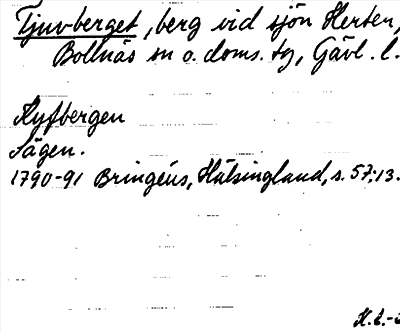 Tjuv-berget, berg vid sjön Herten,
Bollnäs sn o. doms. tg, Gävl. l.
Kyfbergen
Sägen.
1790-91 Bringéus, Hälsingland, s. 57; 13.